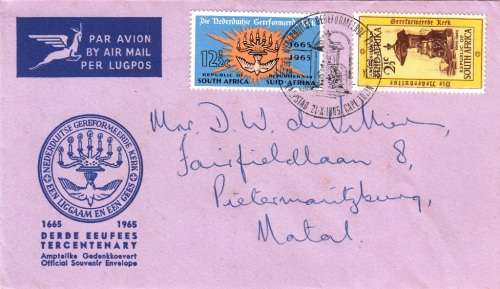 PAR AVION
BY AIR MAIL
PER LUGPOS
Die Nederduitse Gereformeerde Kerk
12½c
1665
1965
REPUBLIC OF SOUTH AFRICA
REPUBLIEK VAN SUID-AFRIKA
Gereformeerde Kerk
2½c
SOUTH AFRICA
Die Nederduitse
KAAPSTAD 21-X-1965 CAPE TOWN
NEDERDUITSE GEREFORMEERDE KERK
EEN LIGGAAM EN EEN GEES
1665 1965
DERDE EEUFEES
TERCENTENARY
Amptelike Gedenkkoevert
Official Souvenir Envelope
Mnr D. W. de Villiers,
Fairfieldlaan 8,
Pietermaritzburg,
Natal.